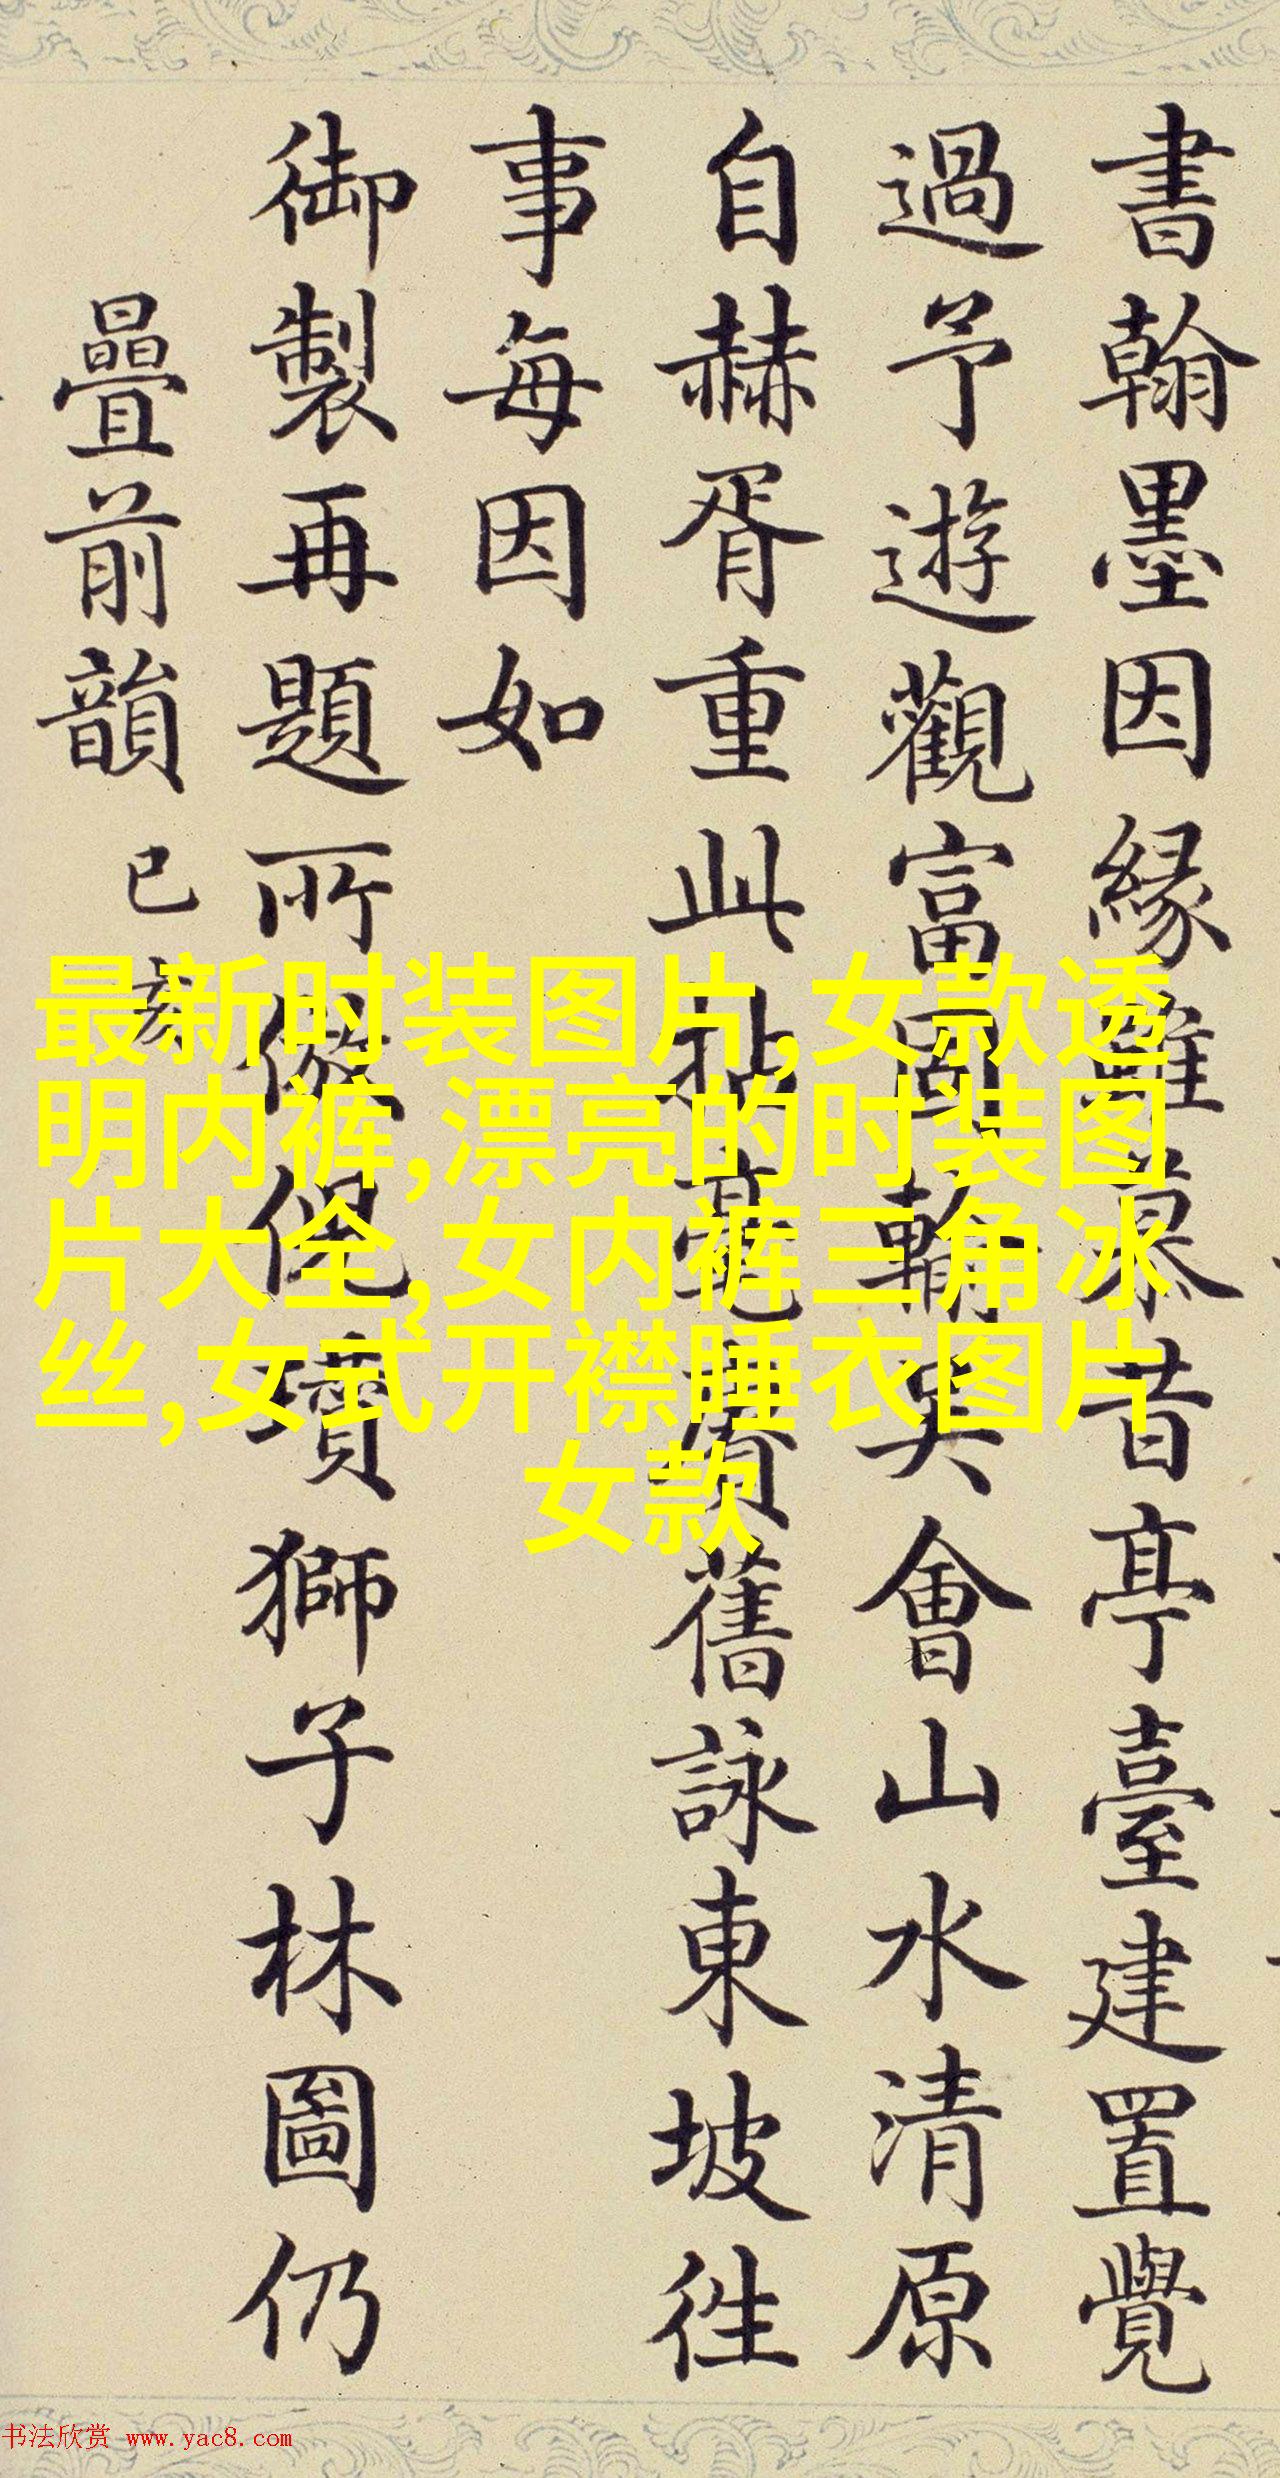 書翰墨因緣雖慕昔亭臺建置覺
過予遊觀富固輸吴會山水清原
自赫胥重此拈毫賡舊詠東坡徃
事每因如
御製再題所倣倪瓚獅子林圖仍
疊前韻 已亥
最新时装图片,女款透
明内裤,漂亮的时装图
片大全,女内裤三角冰
丝,女式开襟睡衣图片
女款
书法欣赏 www.yac8.com